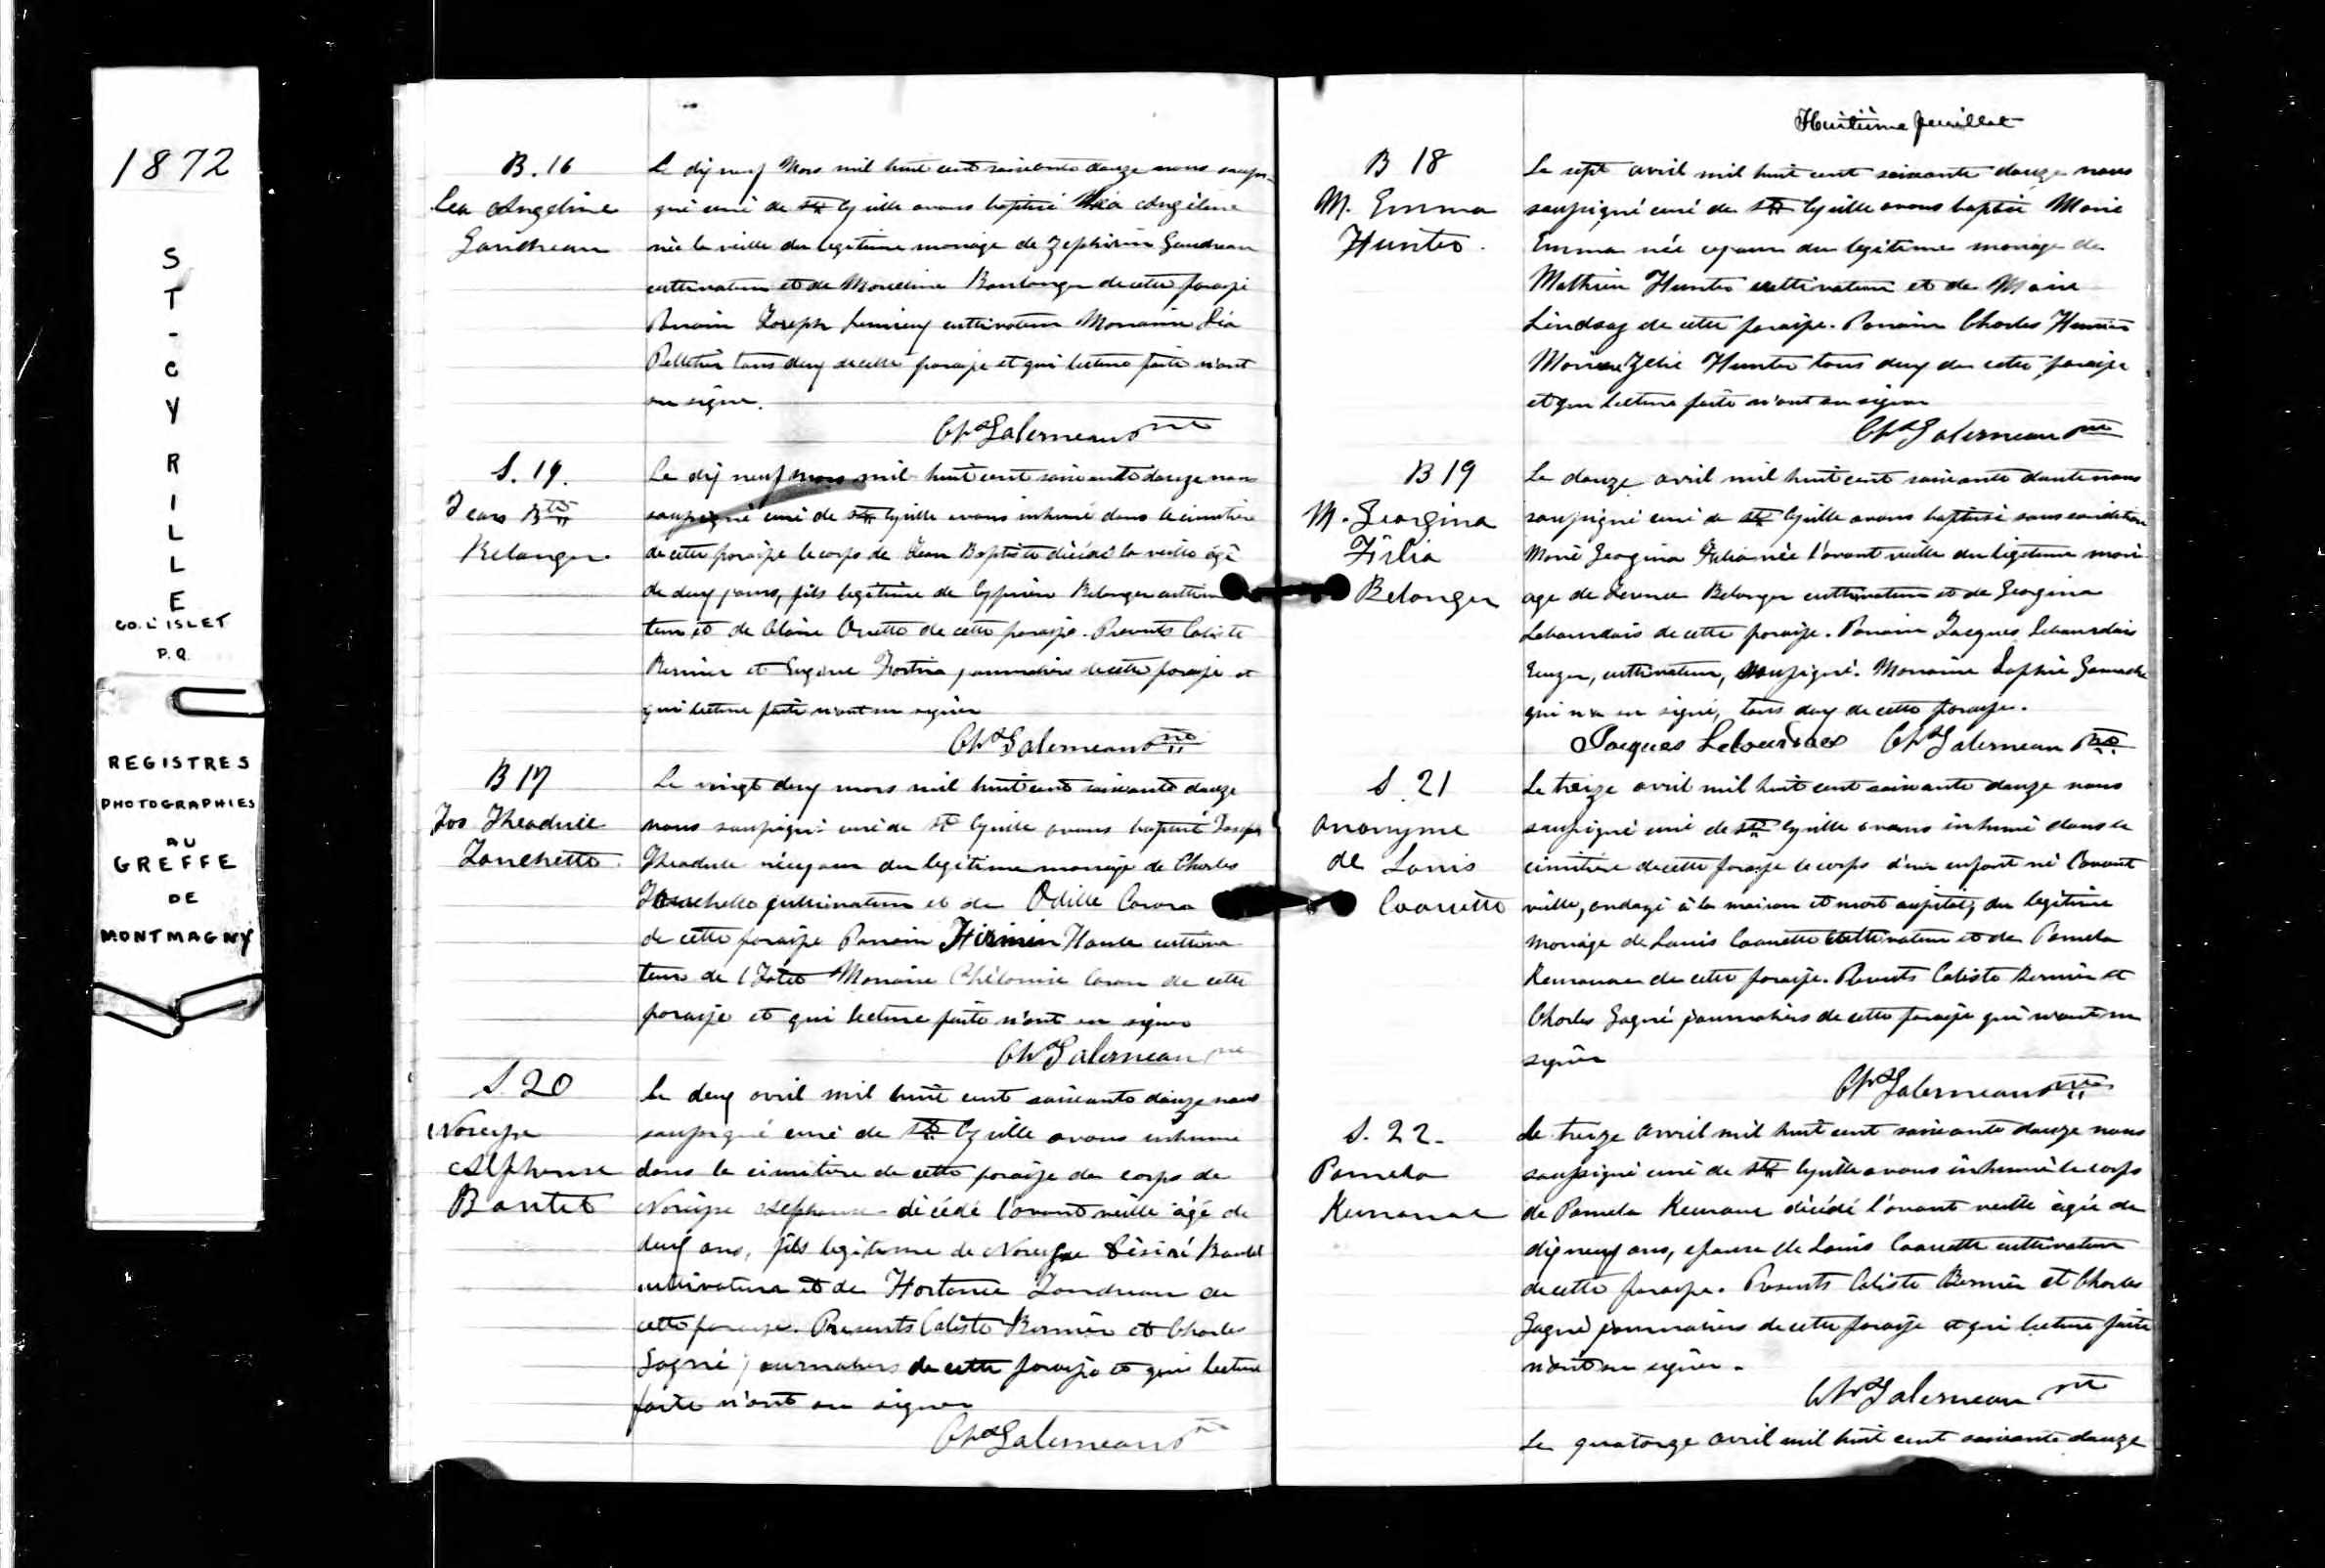 1872
ST-CYRILLE
CO. L'ISLET
P.Q.
REGISTRES
PHOTOGRAPHIES
AU
GREFFE
DE
MONTMAGNY
B. 16
Lea Angeline
Gaudreau
Le dix neuf Mars mil huit cent soixante douze nous soussi-
gné curé de St Cyrille avons baptisé Léa Angéline
née la veille du legitime mariage de Zephirin Gaudreau
cultivateur et de Boulanger de cette paroisse
Parrain Joseph cultivateur Marraine Léa
Pelletier tous deux de cette paroisse et qui lecture faite n'ont
su signer.
Chs Galerneau ptre
S. 19.
Jean Bte
Belanger
Le dix neuf mars mil huit cent soixante douze nous
soussigné curé de St Cyrille avons inhumé dans le cimetière
de cette paroisse le corps de Jean Baptiste décédé la veille âgé
de deux jours, fils legitime de Cyprien Belanger cultiva
teur et de Claire de cette paroisse. Presents Caliste
Bernier et Eugène Fortin journaliers de cette paroisse et
qui lecture faite n'ont su signer
Chs Galerneau ptre
B 17
Jos Theodule
Zanchette
Le vingt deux mars mil huit cent soixante douze
nous soussigné curé de St Cyrille avons baptisé Joseph
Theodule né ce jour du legitime mariage de Charles
cultivateur et de Odille Caron
de cette paroisse Parrain Firmin cultiva
teur de l'Islet Marraine Philomise Caron de cette
paroisse et qui lecture faite n'ont su signer
Chs Galerneau ptre
S. 20
Narcisse
Alphonse
Bautet
Le deux avril mil huit cent soixante douze nous
soussigné curé de St Cyrille avons inhumé
dans le cimetière de cette paroisse le corps de
Narcisse Alphonse décédé l'avant veille âgé de
deux ans, fils legitime de Narcisse Désiré
cultivateur et de Hortense de
cette paroisse. Presents Caliste Bernier et Charles
Gagné journaliers de cette paroisse et qui lecture
faite n'ont su signer
Chs Galerneau ptre
Huitième feuillet
B 18
M. Emma
Hunter.
Le sept avril mil huit cent soixante douze nous
soussigné curé de St Cyrille avons baptisé Marie
Emma née ce jour du legitime mariage de
Mathieu Hunter cultivateur et de Marie
Lindsay de cette paroisse. Parrain Charles Hunter
Marraine Zelie Hunter tous deux de cette paroisse
et qui lecture faite n'ont su signer
Chs Galerneau ptre
B 19
M. Georgina
Belanger
Le douze avril mil huit cent soixante douze nous
soussigné curé de St Cyrille avons baptisé sous condition
Marie Georgina née l'avant veille du legitime mari
age de Belanger cultivateur et de Georgina
Lebourdais de cette paroisse. Parrain Jacques Lebourdais
cultivateur, soussigné. Marraine Sophie Gamache
qui n'a su signé, tous deux de cette paroisse.
Jacques Lebourdais Chs Galerneau ptre
S. 21
Anonyme
de Louis
Caouette
Le treize avril mil huit cent soixante douze nous
soussigné curé de St Cyrille avons inhumé dans le
cimitière de cette paroisse le corps d'un enfant né l'avant
veille, ondoyé à la maison et mort aussitôt, du legitime
mariage de Louis Caouette cultivateur et de Pamela
de cette paroisse. Presents Caliste Bernier et
Charles Gagné journaliers de cette paroisse qui n'ont su
signer
Chs Galerneau ptre
S. 22.
Pamela
Le treize avril mil huit cent soixante douze nous
soussigné curé de St Cyrille avons inhumé le corps
de Pamela décédé l'avant veille âgée de
dix neuf ans, epouse de Louis Caouette cultivateur
de cette paroisse. Presents Caliste Bernier et Charles
Gagné journaliers de cette paroisse et qui lecture faite
n'ont su signer.
Chs Galerneau ptre
Le quatorze avril mil huit cent soixante douze